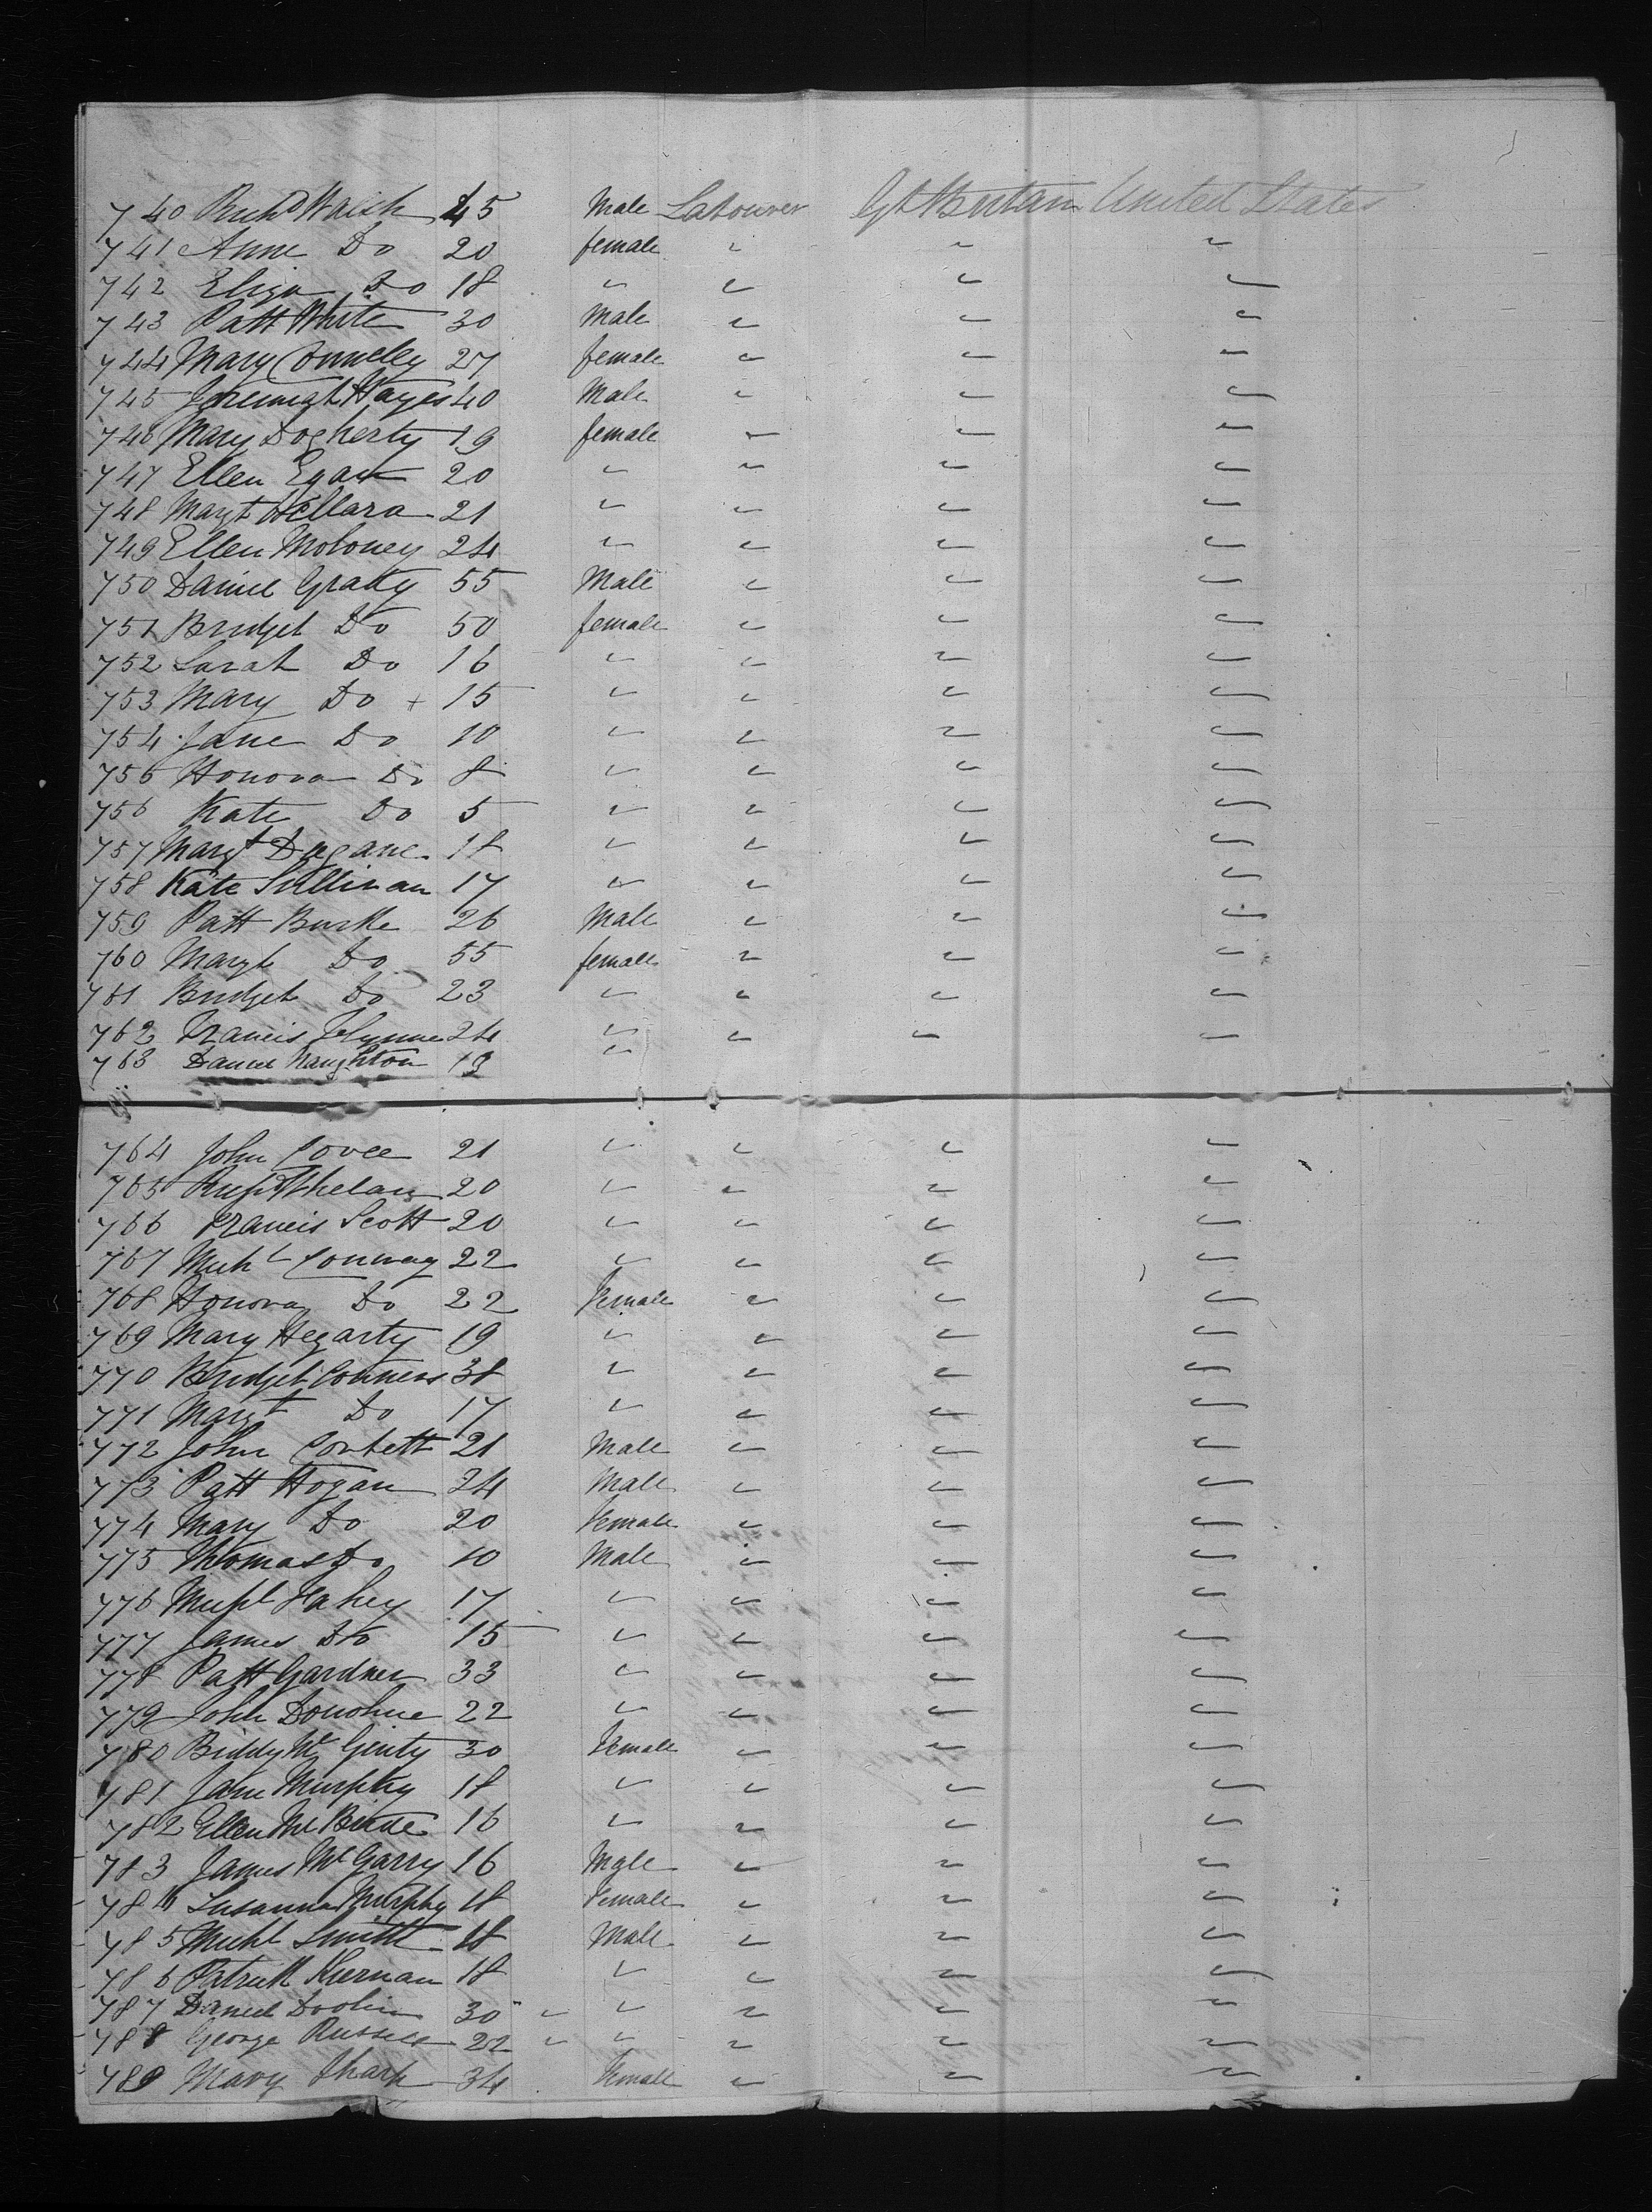 740 Richd Walsh 45 Male Labourer Gt Britain United States
741 Anne Do 20 female " " "
742 Eliza Do 18 " " " "
743 Patt White 30 Male " " "
744 Mary Connelly 27 female " " "
745 Jeremiah Hayes 40 Male " " "
746 Mary Dogherty 19 female " " "
747 Ellen Egan 20 " " " "
748 Margt 21 " " " "
749 Ellen Moloney 24 " " " "
750 Daniel Gratty 55 Male " " "
751 Bridget Do 50 female " " "
752 Sarah Do 16 " " " "
753 Mary Do + 15 " " " "
754 Jane Do 10 " " " "
755 Honora Do 8 " " " "
756 Kate Do 5 " " " "
757 Margt Dugane 18 " " " "
758 Kate Sullivan 17 " " " "
759 Patt Burke 26 Male " " "
760 Margt Do 55 female " " "
761 Bridget Do 23 " " " "
762 Francis Flynne 24 " " " "
763 Daniel Naughton 19 "
764 John 21 " " " "
765 Whelan 20 " " " "
766 Francis Scott 20 " " " "
767 Michl Conway 22 " " " "
768 Honora Do 22 Female " " "
769 Mary Hegarty 19 " " " "
770 Bridget Conners 38 " " " "
771 Margt Do 17 " " " "
772 John Corbett 21 Male " " "
773 Patt Hogan 24 Male " " "
774 Mary Do 20 Female " " "
775 Thomas Do 10 Male " " "
776 Michl Fahey 17 " " " "
777 James Do 15 " " " "
778 Patt Gardner 33 " " " "
779 John Donohue 22 " " " "
780 Biddy Mc Ginty 30 Female " " "
781 Jane Murphy 18 " " " "
782 Ellen Mc Bride 16 " " " "
783 James Mc Garry 16 Male " " "
784 Susanna Murphy 18 Female " " "
785 Michl Smith 18 Male " " "
786 Patrick Kiernan 18 " " " "
787 Daniel Doolin 30 " " " " "
788 George Russell 22 " " " " "
789 Mary Sharp 34 Female " " "